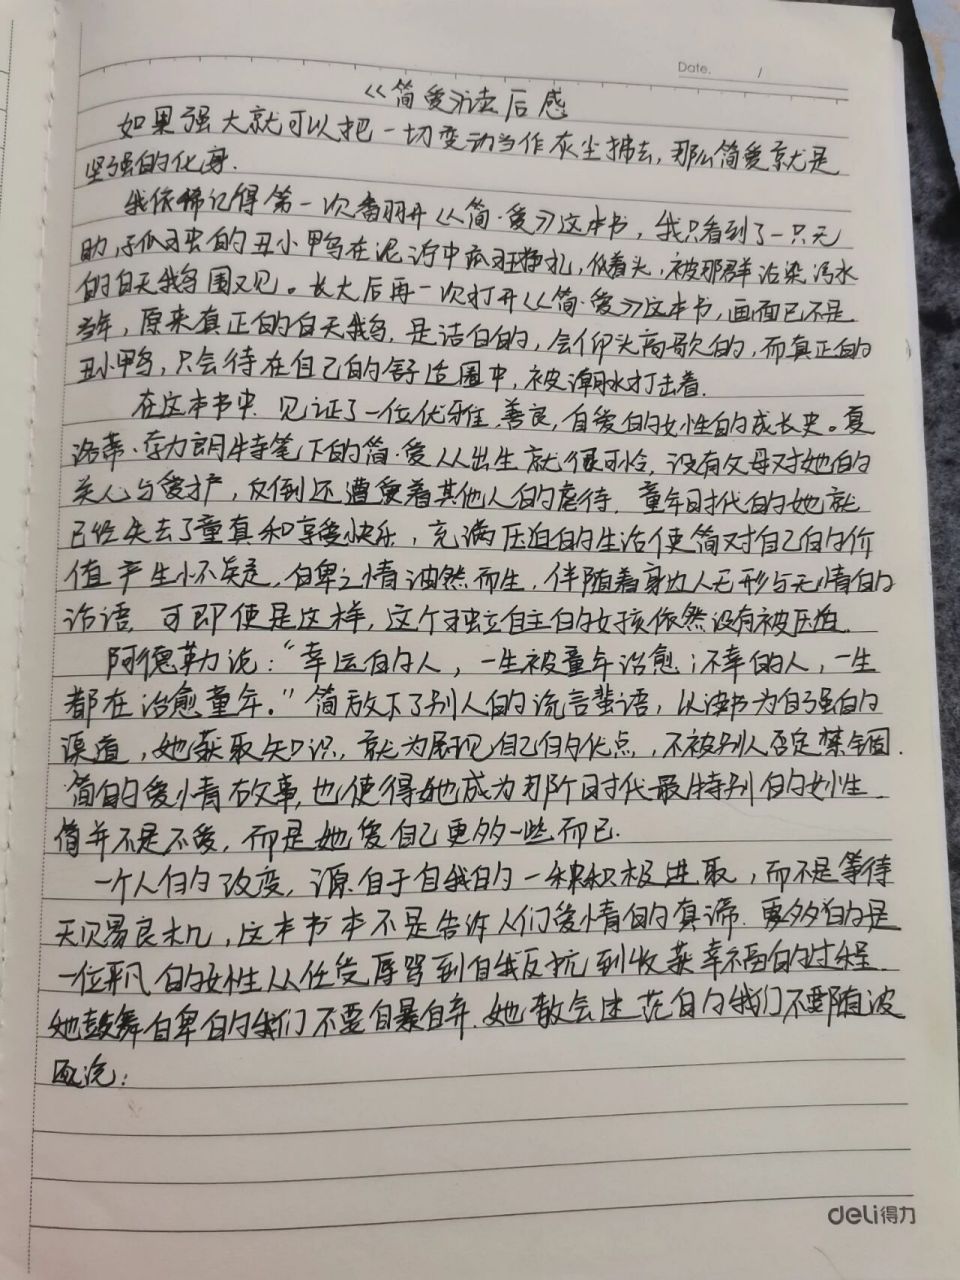 Date. /
《简爱》读后感
如果强大就可以把一切变动当作灰尘拂去，那么简爱就是
坚强的化身.
我依稀记得第一次翻开《简·爱》这本书，我只看到了一只无
助，孤独的丑小鸭在泥泞中疯狂挣扎，低着头，被那群沾染污水
的白天鹅围观。长大后再一次打开《简·爱》这本书，画面已不是
当年，原来真正的白天鹅，是洁白的，会仰头高歌的，而真正的
丑小鸭，只会待在自己的舒适圈中，被潮水打击着.
在这本书中.见证了一位优雅.善良，自爱的女性的成长史。夏
洛蒂·勃朗特笔下的简·爱从出生就很可怜，没有父母对她的
关心与爱护，反倒还遭受着其他人的虐待.童年时代的她就
已经失去了童真和享受快乐，充满压迫的生活使简对自己的价
值产生怀疑，自卑之情油然而生，伴随着身边人无形与无情的
话语，可即使是这样，这个独立自主的女孩依然没有被压迫.
阿德勒说：“幸运的人，一生被童年治愈；不幸的人，一生
都在治愈童年。”简放下了别人的流言蜚语，以读书为自强的
渠道，她获取知识，就为展现自己的优点，不被别人否定禁锢.
简的爱情故事，也使得她成为那个时代最特别的女性.
简并不是不爱，而是她爱自己更多一些而已.
一个人的改变，源自于自我的一种积极进取，而不是等待
天赐良机，这本书本不是告诉人们爱情的真谛.更多的是
一位平凡的女性从任受辱骂到自我反抗到收获幸福的过程.
她鼓舞自卑的我们不要自暴自弃.她教会迷茫的我们不要随波
逐流；
deli得力